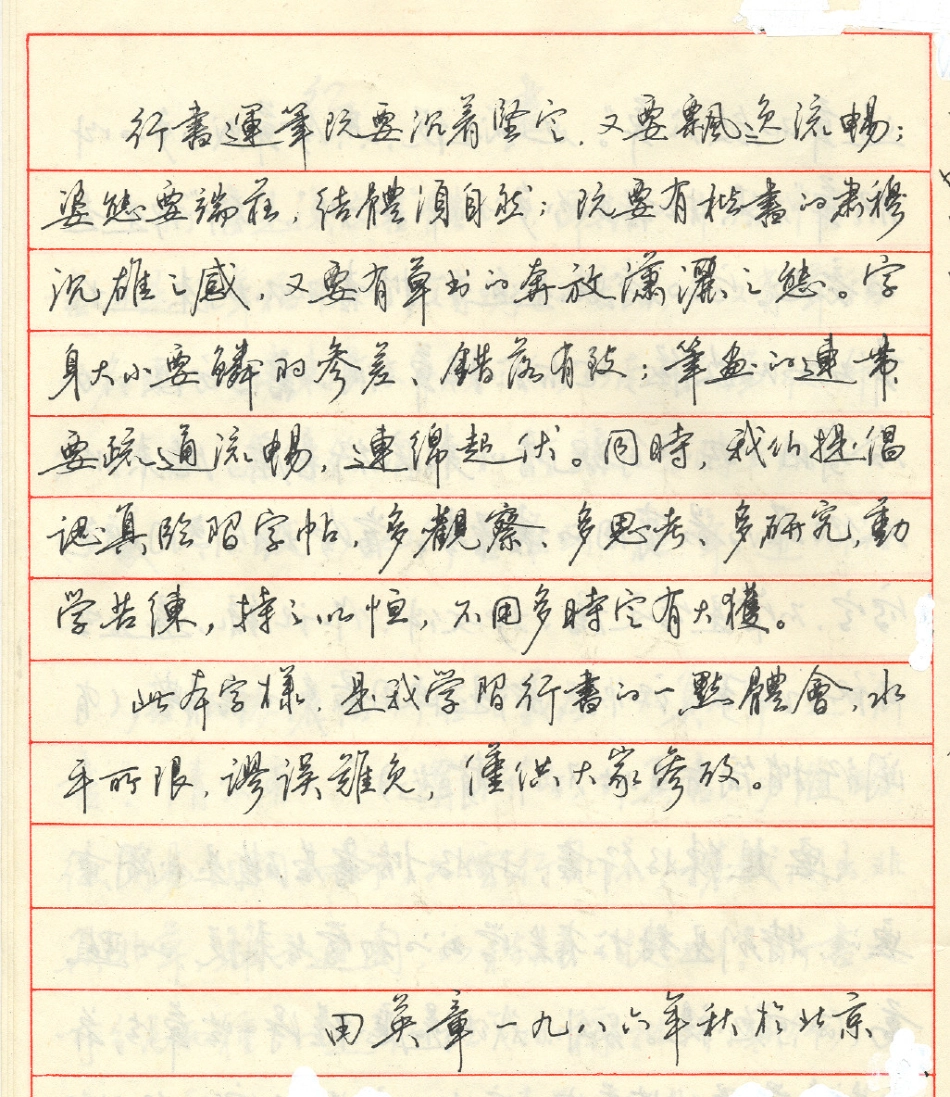 行書運筆既要沉着堅定，又要飄逸流暢；
姿態要端莊，結體須自然；既要有楷書的肅穆
沉雄之感，又要有草书的奔放瀟灑之態。字
身大小要鱗的參差、錯落有致；筆画的連带
要疏通流暢，連綿起伏。同時，我们提倡
認真臨習字帖，多觀察、多思考、多研究，勤
学苦練，持之以恒，不用多時定有大獲。
此本字樣，是我学習行書的一點體會，水
平所限，謬误難免，僅供大家參攷。
田英章一九八六年秋於北京